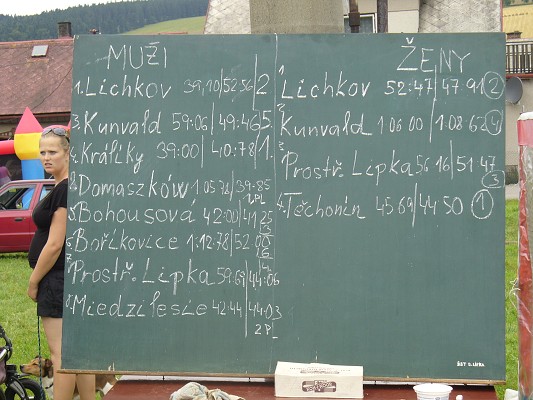 MUŽI
1. Lichkov 39,10 | 52:56 | 2
3. Kunvald 59:06 | 49:46 | 5.
4. Králíky 39:00 | 40:78 | 1.
Domaszków 1:05 78 | 39-85
2.PL
5. Bohousová 42:00 | 41 25
6. Bořikovice 1:12:78 | 52
7. Prostř. Lipka 59:69 | 44:06
8. Miedzilesie 42:44 | 44:03
2 PL
ŽENY
1. Lichkov 52:47 | 47 91 2
2. Kunvald 1:06 00 | 1:08 62 4
3. Prostř. Lipka 56 16 | 51 47
3
4. Těchonín 45 69 | 44 50 1